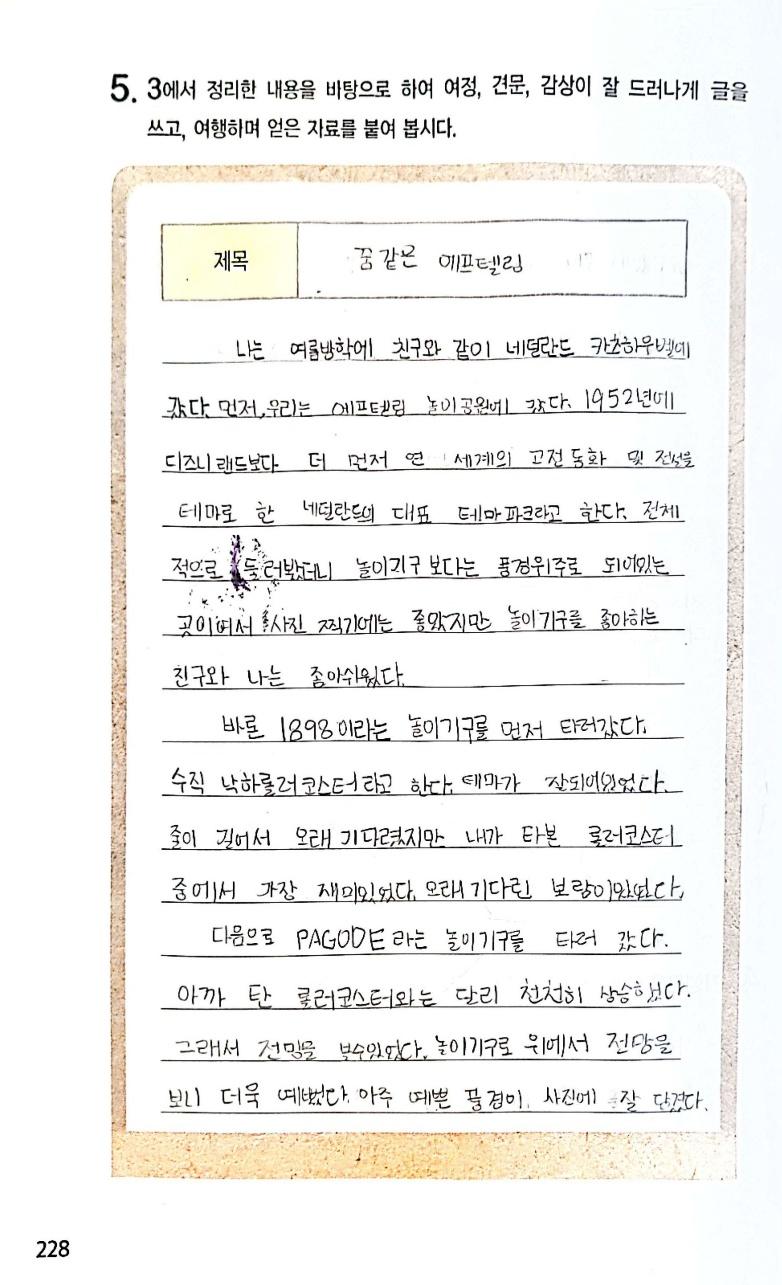 5. 3에서 정리한 내용을 바탕으로 하여 여정, 견문, 감상이 잘 드러나게 글을
쓰고, 여행하며 얻은 자료를 붙여 봅시다.
제목
꿈같은 에프텔링
나는 여름방학에 친구와 같이 네덜란드 카츠하우벨에
갔다. 먼저, 우리는 에프텔링 놀이공원에 갔다. 1952년에
디즈니랜드보다 더 먼저 연 세계의 고전동화 및 전설을
테마로 한 네덜란드의 대표 테마파크라고 한다. 전체
적으로 둘러봤더니 놀이기구보다는 풍경위주로 되어있는
곳이여서 사진 찍기에는 좋았지만 놀이기구를 좋아하는
친구와 나는 좀아쉬웠다.
바론 1898이라는 놀이기구를 먼저 타러갔다.
수직 낙하롤러코스터라고 한다. 테마가 잘되어있었다.
줄이 길어서 오래 기다렸지만 내가 타본 롤러코스터
중에서 가장 재미있었다. 오래기다린 보람이있었다.
다음으로 PAGODE라는 놀이기구를 타러 갔다.
아까 탄 롤러코스터와는 달리 천천히 상승하였다.
그래서 전망을 볼수있었다. 놀이기구로 위에서 전망을
보니 더욱 예뻤다. 아주 예쁜 풍경이 사진에 잘 담겼다.
228